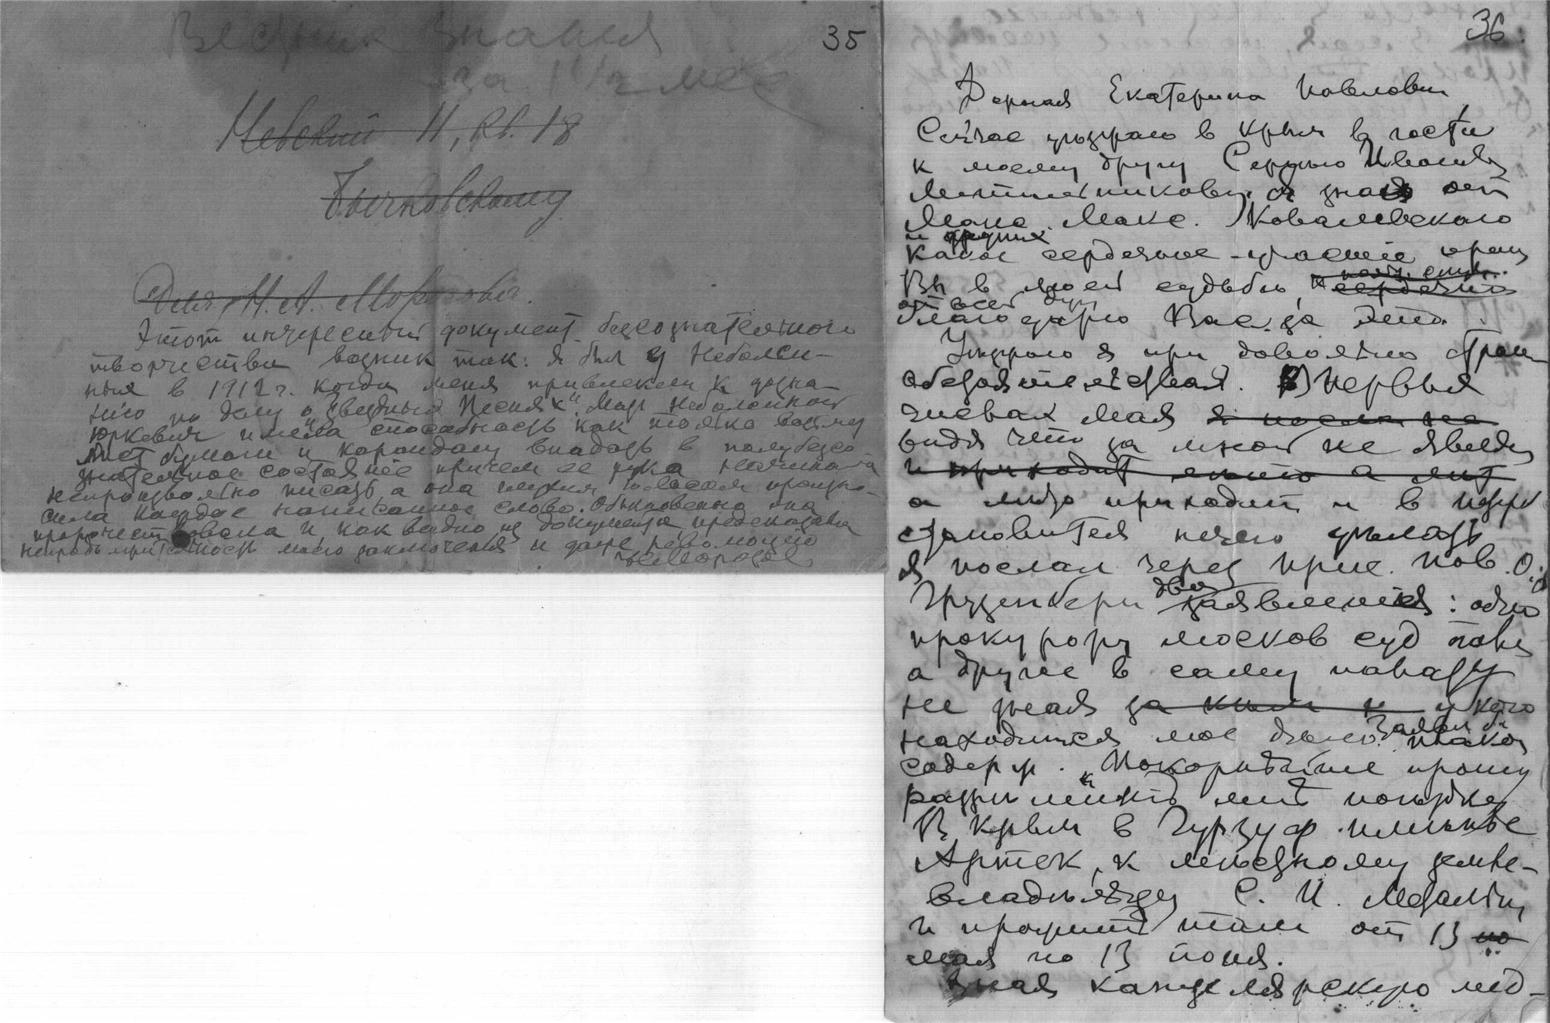 35
Вестник Знания
за 1 1/2 мес
Невский 11, кв. 18
Бычковскому
Для Н. А. Морозова.
Этот интересный документ бессознательного
творчества возник так: я был у Неболси-
ных в 1912 г. когда меня привлекли к дозна-
нию по делу о "Звездных Песнях". Мар. Неболсиной
Юркевич имела способность как только возьмет
лист бумаги и карандаш впадать в полубессо-
знательное состояние причем ее рука начинала
непроизвольно писать, а она глухим голосом произно-
сила каждое написанное слово. Обыкновенно она
пророчествовала и как видно из документа предсказала
непродолжительность моего заключения и даже революцию
Н. Морозов
36.
Дорогая Екатерина Павловн,
Сейчас уезжаю в Крым в гости
к моему другу Сергею Иванов
Метальникову. я знаю от
Макс. Макс. Ковалевского
и других
какое сердечное участие прин
Вы в моей судьбе, и сердечно
от всей души
благодарю Вас за это.
Уезжаю я при довольно стран
обстоятельствах. В первых
числах мая я послал не
видя что за мной не явля
и приходит лето а лит
а лето приходит и в город
становится нечего делать
я послал через прис. пов. О.
Грузенберг два заявления: одно
прокурору москов суд пал
а другое в саму палату
не зная за кем и у кого
находится мое дело. Заявл б
такого
содерж. "Покорнейше прошу
разрешить мне поездку
В Крым в Гурзуф имение
Артек, к местному земле-
владельцу С. И. Метальн
и прожить там от 13 по
мая по 13 июня.
Зная канцелярскую мед-